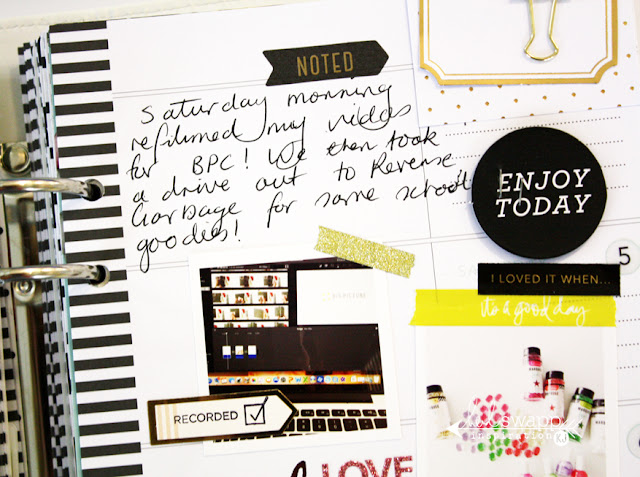 NOTED
Saturday morning
refilmed my videos
for BPC! We then took
a drive out to Reverse
Garbage for some school
goodies!
ENJOY
TODAY
5
I LOVED IT WHEN...
it's a good day
BIG PICTURE
RECORDED
LOVE
swapp
inspiration